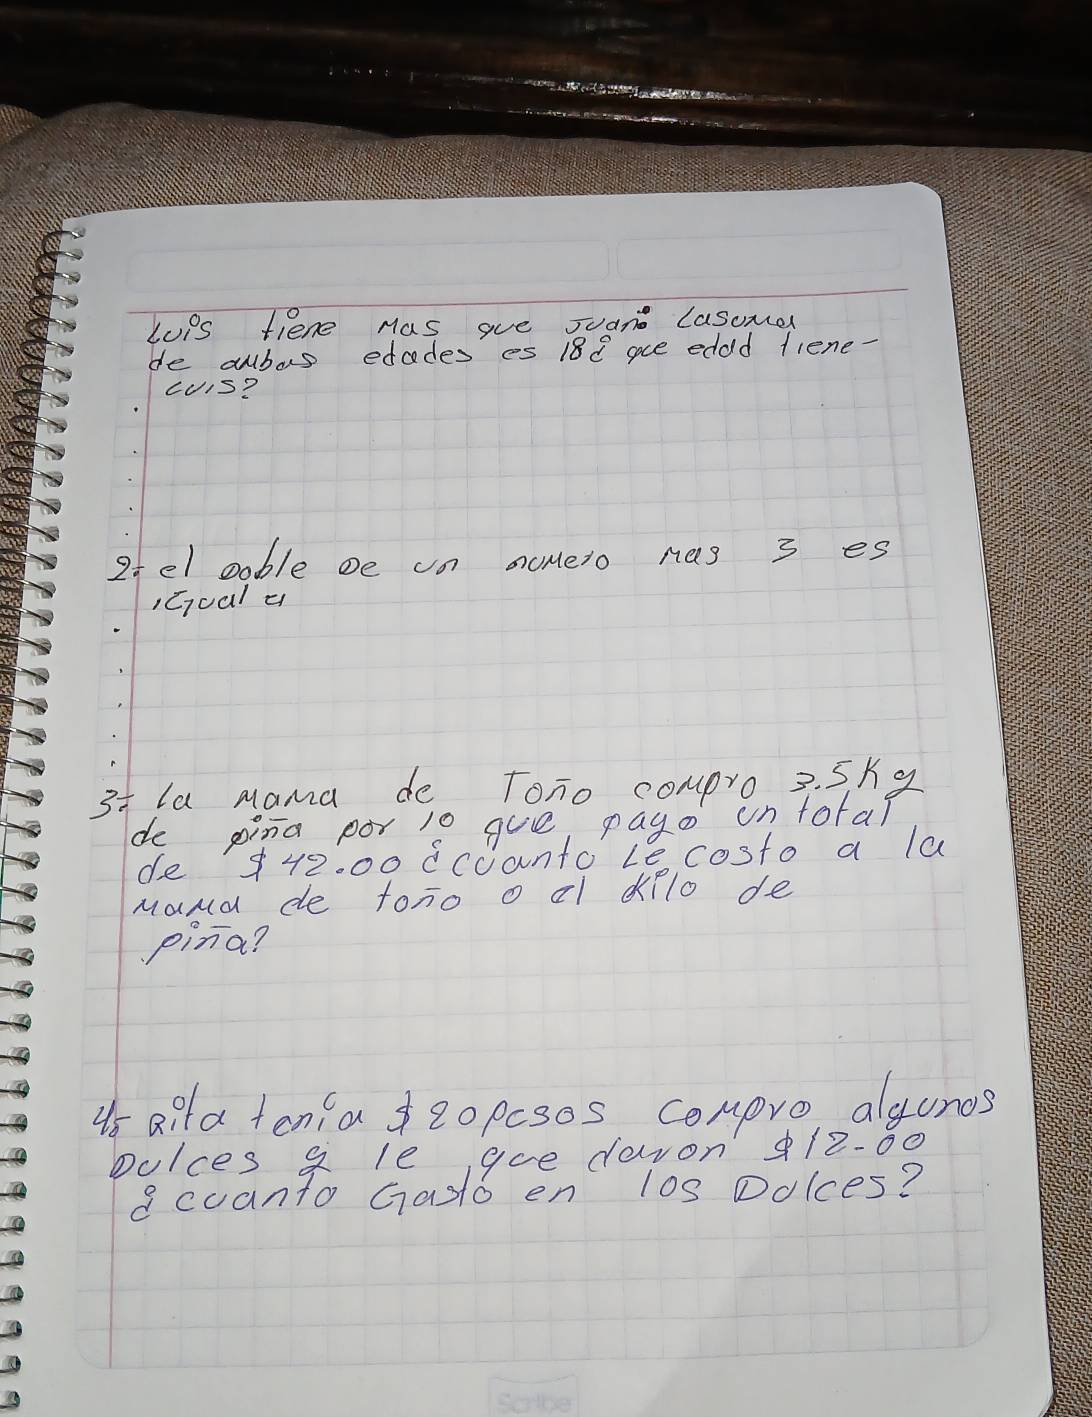 Luis tiene mas que Juan: Lasuma
de ambas edades es 18 ¿ que edad tiene-
LUIS?
2- el doble de un numero mas 3 es
iGual a
3- la mama de Toño compro 3.5Kg
de piña por lo que pago un total
de $42.00 ¿cuanto le costo a la
mama de toño o el kilo de
piña?
4- Rita tenia $20pesos compro algunos
Dulces y le que daron $12-00
¿ cuanto Gasto en los Dulces?
Scribe